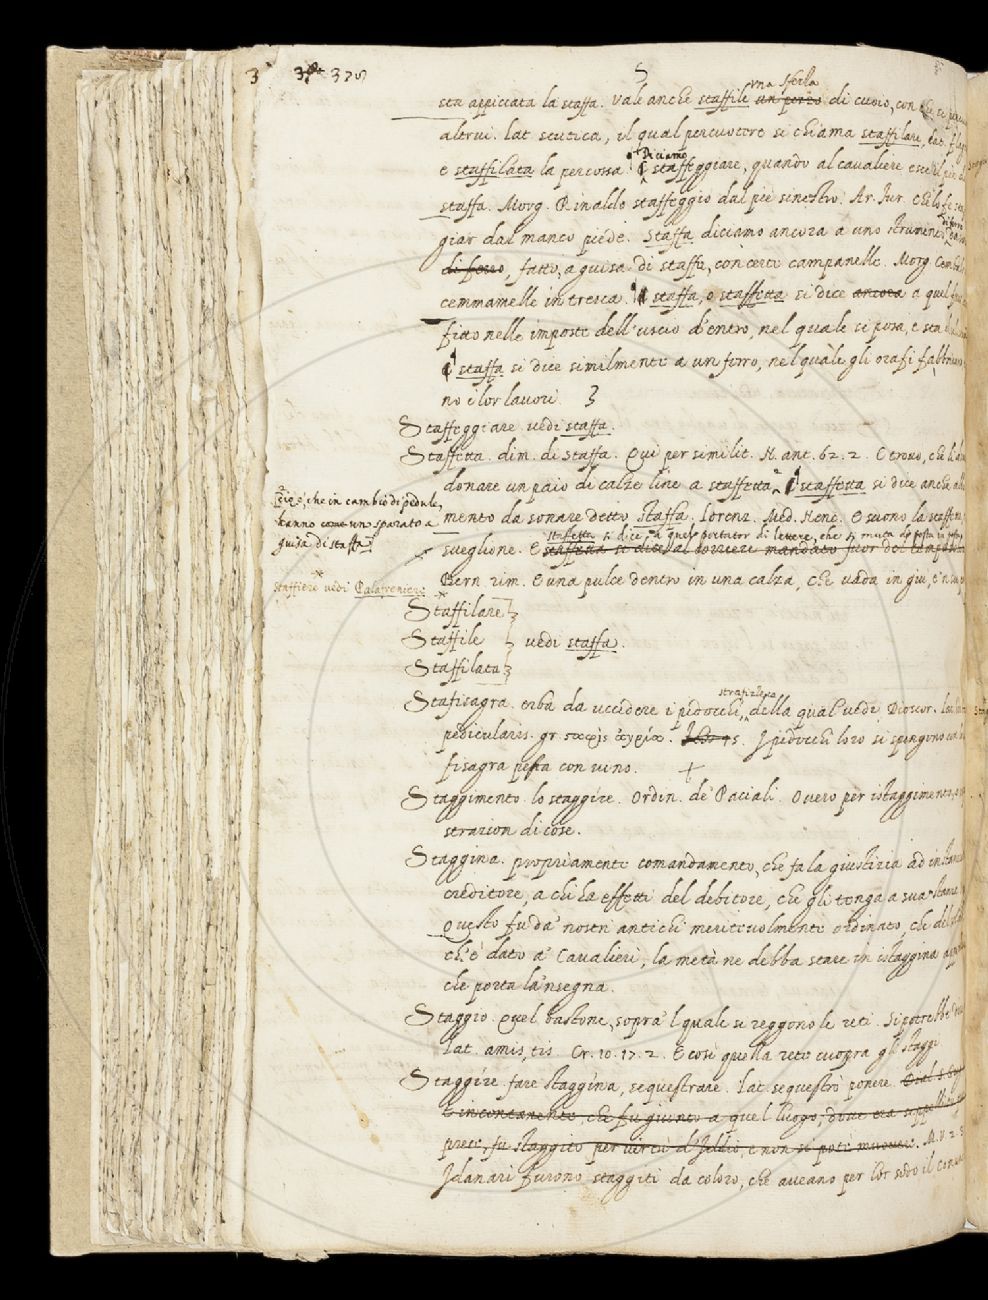 3 375
S
sta appiccata la staffa. Vale anche staffile un pezzo una sferla di cuoio, con che si
altrui. lat. scutica, il qual percuotere si chiama staffilare, lat.
e staffilata la percossa. Diciamo staffeggiare, quando al cavaliere esce il piè
staffa. Morg. Rinaldo staffeggiò dal piè sinestro. Ar. Fur.
giar dal manco piede. Staffa diciamo ancora a uno strumento di ferro
di ferro, fatto, a guisa di staffa, con certe campanelle. Morg.
cemmamelle in tresca. staffa, o staffetta si dice ancora a quel
fitto nelle imposte dell'uscio dentro, nel quale si posa, e sta
staffa si dice similmente a un ferro, nel quale gli orafi
no i lor lavori.
Staffeggiare vedi staffa.
Staffetta. dim. di Staffa. Qui per similit. N. ant. 62. 2. E trovo, che
donare un paio di calze line a staffetta. staffetta si dice ancora
cioè, che in cambio di pedule,
hanno come un sparato a
guisa di staffa
mento da sonare detto Staffa. Lorenz. Med. Nenc. E suono la
staffetta si dice a quel portator di lettere, che si muta di posta in posta
sveglione. E staffetta si dice al corriere mandato fuor del
Bern. rim. E una pulce dentro in una calza, che vada in giu, e 'n su,
Staffiere vedi Palafreniere
Staffilare
Staffile vedi staffa.
Staffilata
Stafisagra. erba da uccidere i pidocchi, strafizzeca della qual vedi Dioscor. lat.
pedicularis. gr. σταφὶς ἀγρία. I pidocchi loro si spengono
fisagra pesta con vino.
Staggimento. lo staggire. Ordin. de' Paciali. Overo per istaggimento,
strazion di cose.
Staggina. propriamente comandamento, che fa la giustizia ad
creditore, a chi ha effetti del debitore, che gli tenga a sua
Questo fu da' nostri antichi meritevolmente ordinato, che del
ch'è dato a' Cavalieri, la metà ne debba stare in istaggina
che porta la 'nsegna.
Staggio. Quel bastone, sopra 'l quale si reggono le reti. Si potrebbe
lat. amis, tis. Cr. 10. 17. 2. E così quella rete cuopra gli staggi
Staggire. fare staggina, sequestrare. lat. sequestro ponere.
E incontanente, che fu giunto a quel luogo, dove era
prete, fu staggito per virtù d'Iddio, e non si potè muovere. M. V. 2.
I danari furono staggiti da coloro, che aveano per lor sodo il